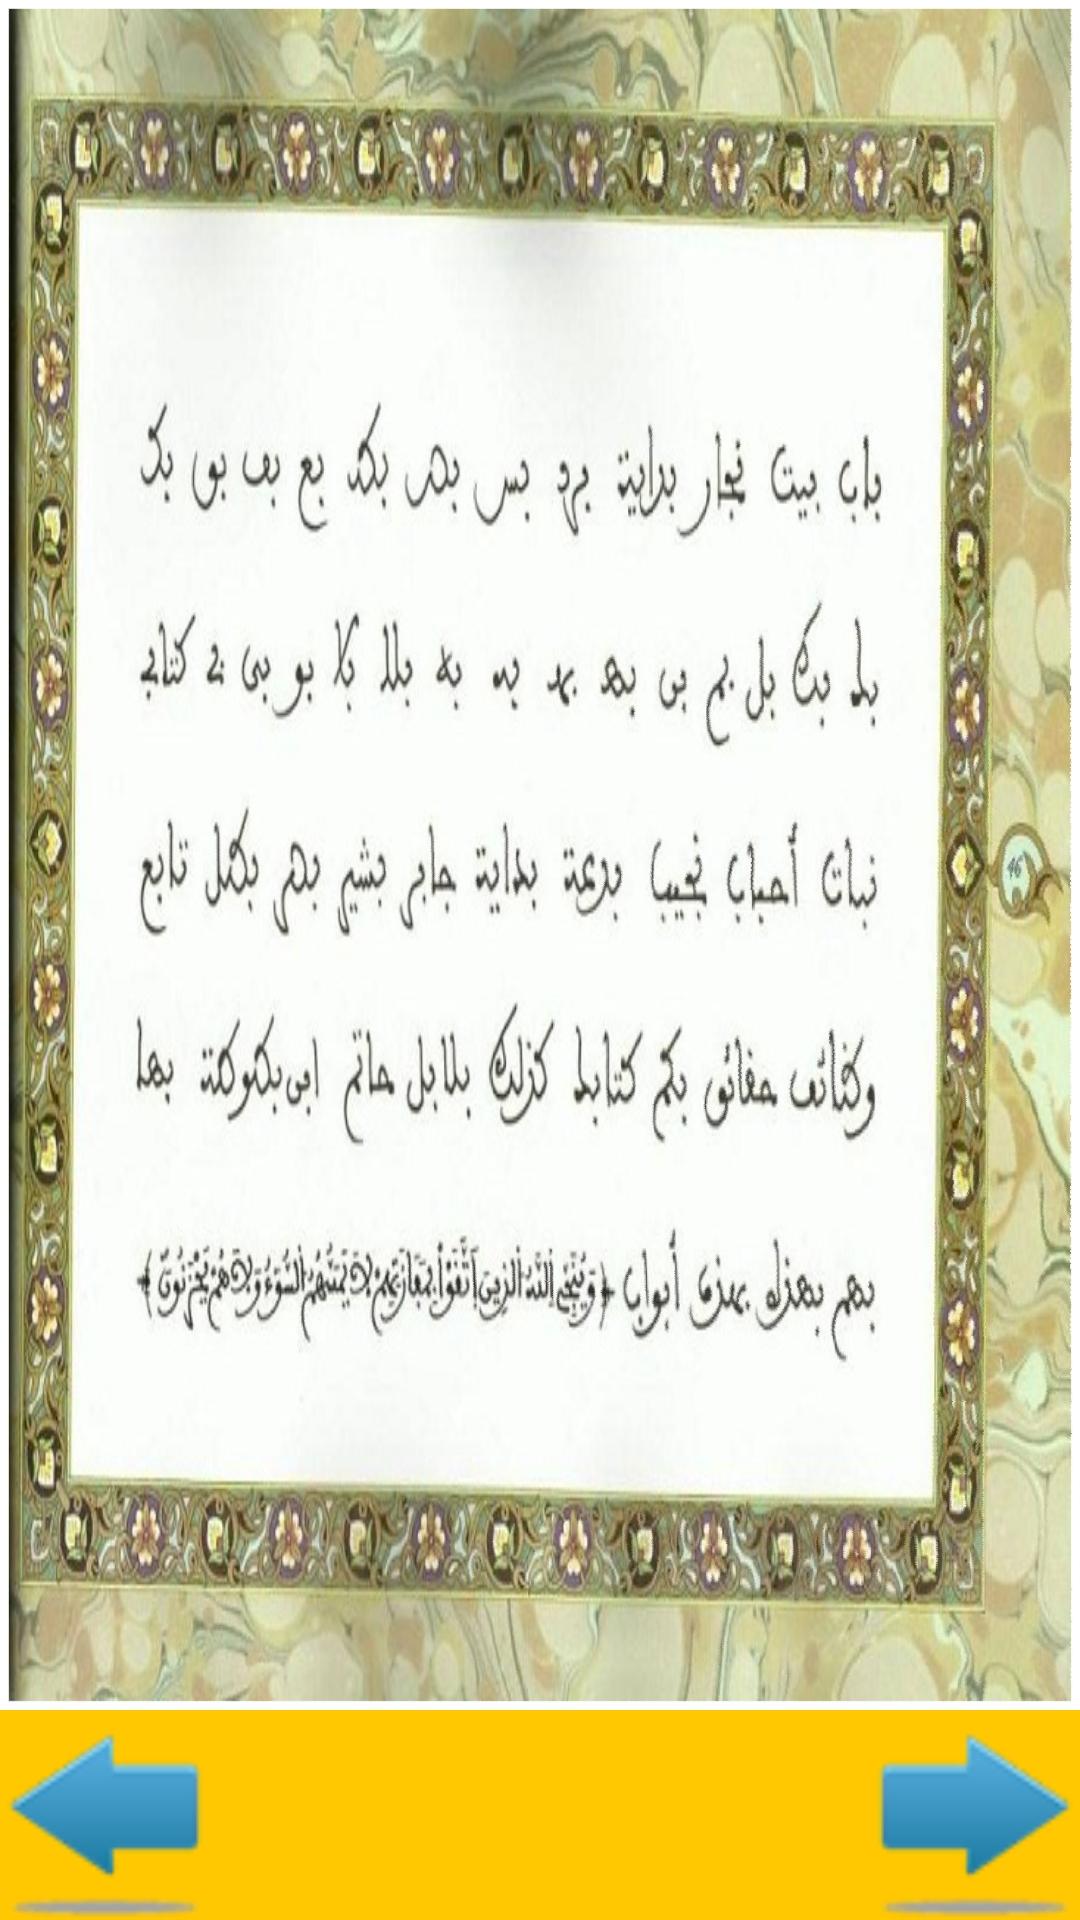 باب بيت نجار بداية برد بس بصر بكد بع بف بق بك
بلد بك بل بم بن بها بهد به به بللا بكا بو بى نے كتابے
نبات أحباب نجيب بديعة بداية جابر بشير بهر بكل تابع
وكثائف حقائق بكم كتابلد كذلك بلابل حاتم ابن بكتوكتة بها
بهم بهذل بهذى أبواب ﴿وَيُنَجِّے اِ۬للَّهُ اُ۬لذِينَ اَ۪تَّقَوْاْ بِمَفَازَتِهِمْ لَا يَمَسُّهُمُ اُ۬لسُّوٓءُ وَلَا هُمْ يَحْزَنُونَ﴾
46